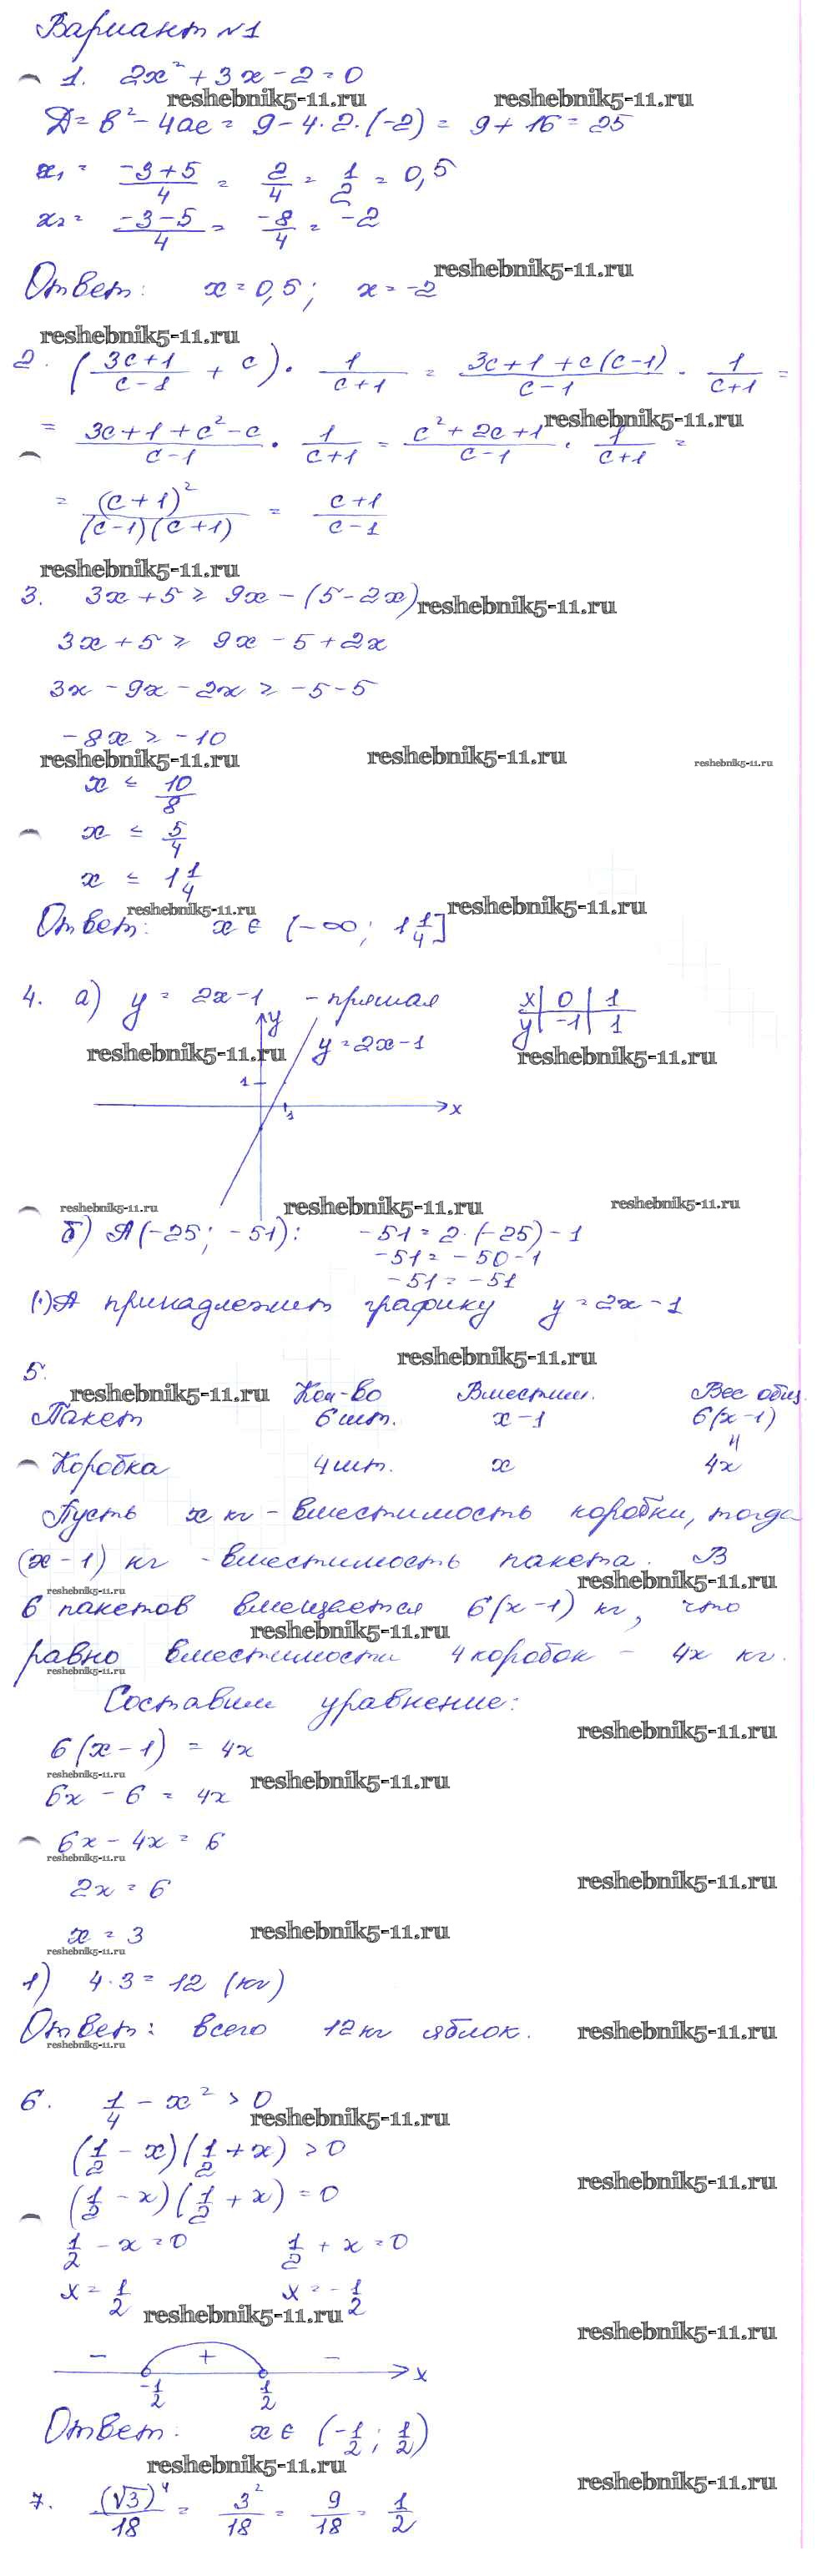 Вариант №1
1. 2x² + 3x - 2 = 0
reshebnik5-11.ru reshebnik5-11.ru
Д = b² - 4ac = 9 - 4·2·(-2) = 9 + 16 = 25
x₁ = (-3+5)/4 = 2/4 = 1/2 = 0,5
x₂ = (-3-5)/4 = -8/4 = -2
reshebnik5-11.ru
Ответ: x = 0,5; x = -2
reshebnik5-11.ru
2. ((3c+1)/(c-1) + c) · 1/(c+1) = (3c+1+c(c-1))/(c-1) · 1/(c+1) =
reshebnik5-11.ru
= (3c+1+c²-c)/(c-1) · 1/(c+1) = (c²+2c+1)/(c-1) · 1/(c+1) =
= (c+1)²/((c-1)(c+1)) = (c+1)/(c-1)
reshebnik5-11.ru
3. 3x + 5 ≥ 9x - (5 - 2x)
reshebnik5-11.ru
3x + 5 ≥ 9x - 5 + 2x
3x - 9x - 2x ≥ -5 - 5
-8x ≥ -10
reshebnik5-11.ru reshebnik5-11.ru reshebnik5-11.ru
x ≤ 10/8
x ≤ 5/4
x ≤ 1 1/4
reshebnik5-11.ru reshebnik5-11.ru
Ответ: x ∈ (-∞; 1 1/4]
4. а) y = 2x - 1 - прямая
x 0 1
y -1 1
y
reshebnik5-11.ru y = 2x - 1 reshebnik5-11.ru
1
1 x
reshebnik5-11.ru reshebnik5-11.ru reshebnik5-11.ru
б) A(-25; -51): -51 = 2·(-25) - 1
-51 = -50 - 1
-51 = -51
(·)A принадлежит графику y = 2x - 1
reshebnik5-11.ru
5.
reshebnik5-11.ru Кол-во Вместим. Вес общ.
Пакет 6 шт. x-1 6(x-1)
=
Коробка 4 шт. x 4x
Пусть x кг - вместимость коробки, тогда
(x-1) кг - вместимость пакета. В
reshebnik5-11.ru reshebnik5-11.ru
6 пакетов вмещается 6(x-1) кг, что
reshebnik5-11.ru
равно вместимости 4 коробок - 4x кг.
reshebnik5-11.ru
Составим уравнение:
reshebnik5-11.ru
6(x-1) = 4x
reshebnik5-11.ru reshebnik5-11.ru
6x - 6 = 4x
6x - 4x = 6
reshebnik5-11.ru
2x = 6
reshebnik5-11.ru
x = 3
reshebnik5-11.ru
reshebnik5-11.ru
1) 4·3 = 12 (кг)
Ответ: всего 12 кг яблок.
reshebnik5-11.ru
reshebnik5-11.ru
6. 1/4 - x² > 0
reshebnik5-11.ru
(1/2 - x)(1/2 + x) > 0
reshebnik5-11.ru
(1/2 - x)(1/2 + x) = 0
1/2 - x = 0 1/2 + x = 0
x = 1/2 x = -1/2
reshebnik5-11.ru
reshebnik5-11.ru
- + -
x
-1/2 1/2
Ответ: x ∈ (-1/2; 1/2)
reshebnik5-11.ru
reshebnik5-11.ru
7. (√3)⁴/18 = 3²/18 = 9/18 = 1/2